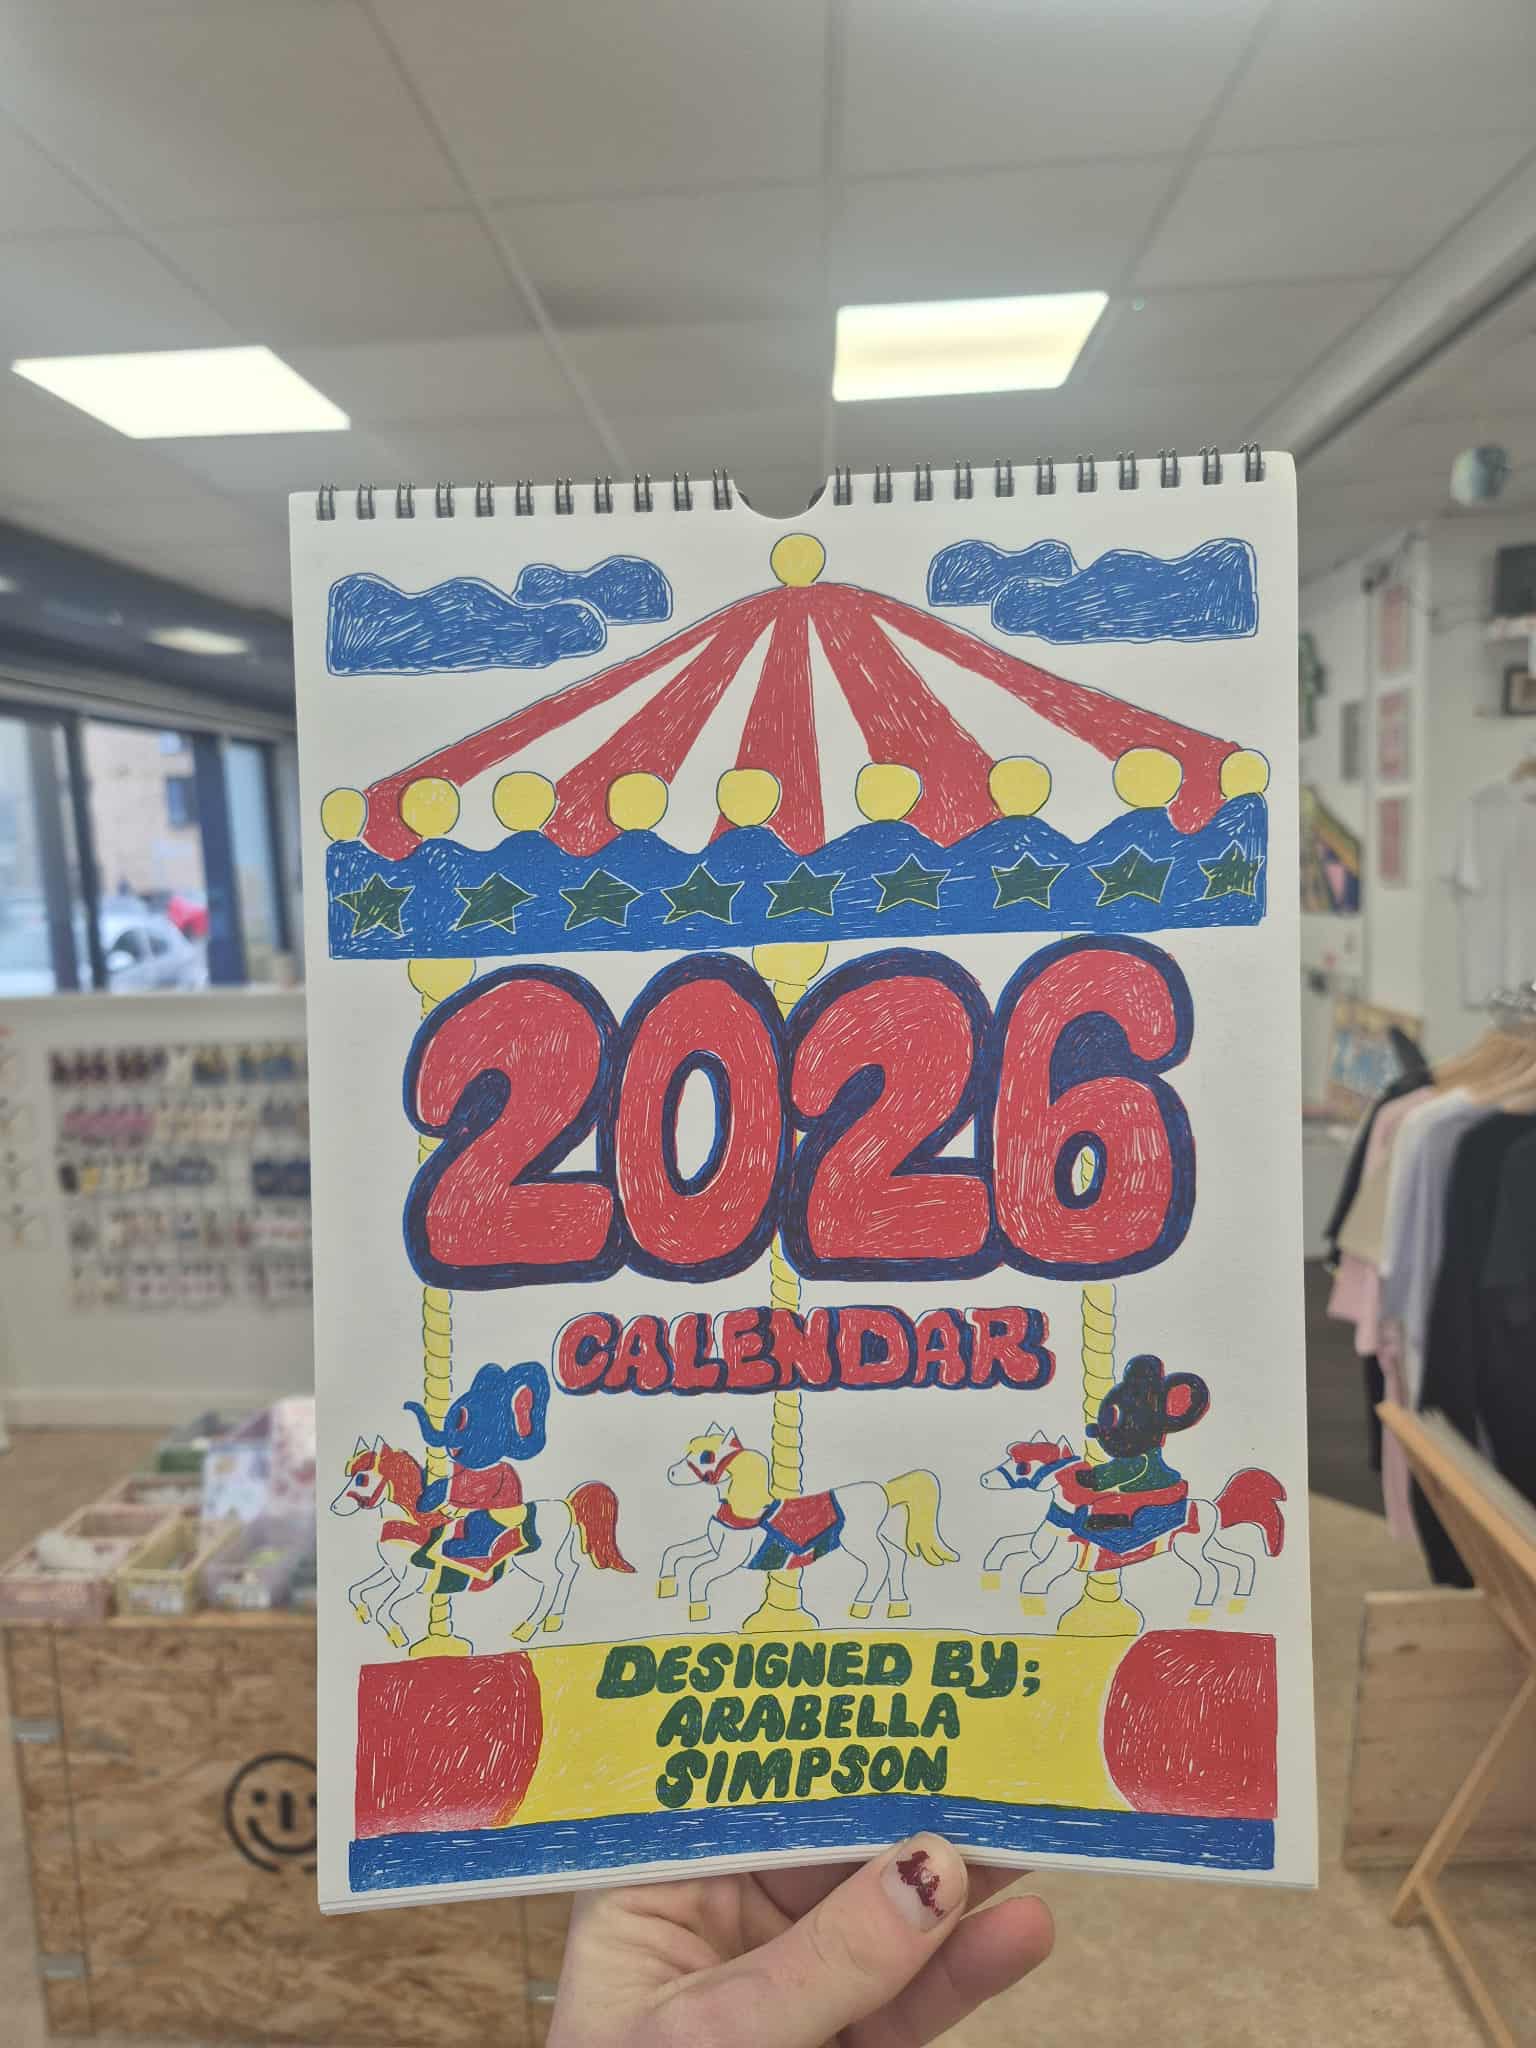 2026
CALENDAR
DESIGNED BY;
ARABELLA
SIMPSON